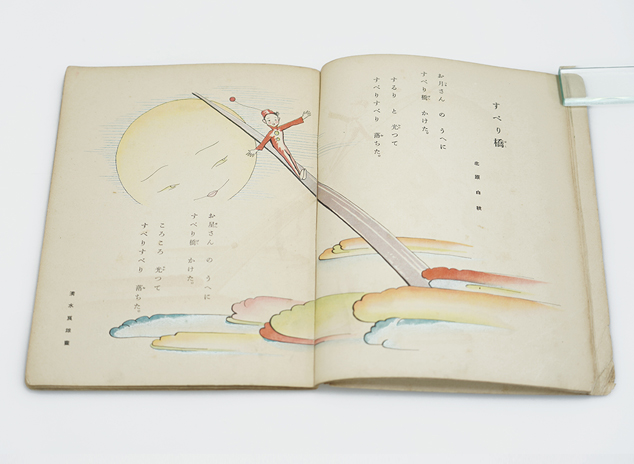 すべり橋
北原白秋
お月さん の うへに
すべり橋 かけた。
するり と 光つて
すべりすべり 落ちた。
お星さん の うへに
すべり橋 かけた。
ころころ 光つて
すべりすべり 落ちた。
清水良雄畫